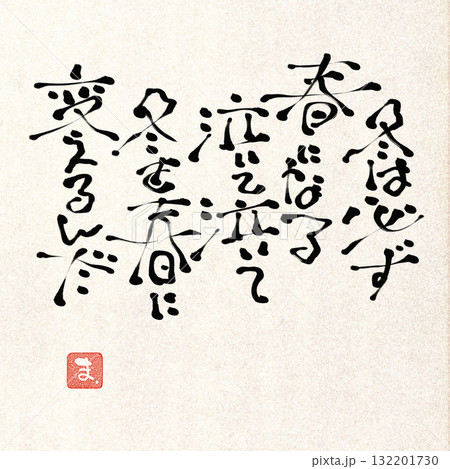 冬は必ず
春になる
泣いて泣いて
冬を春に
変えるんだ
ま.
PIXTA
132201730